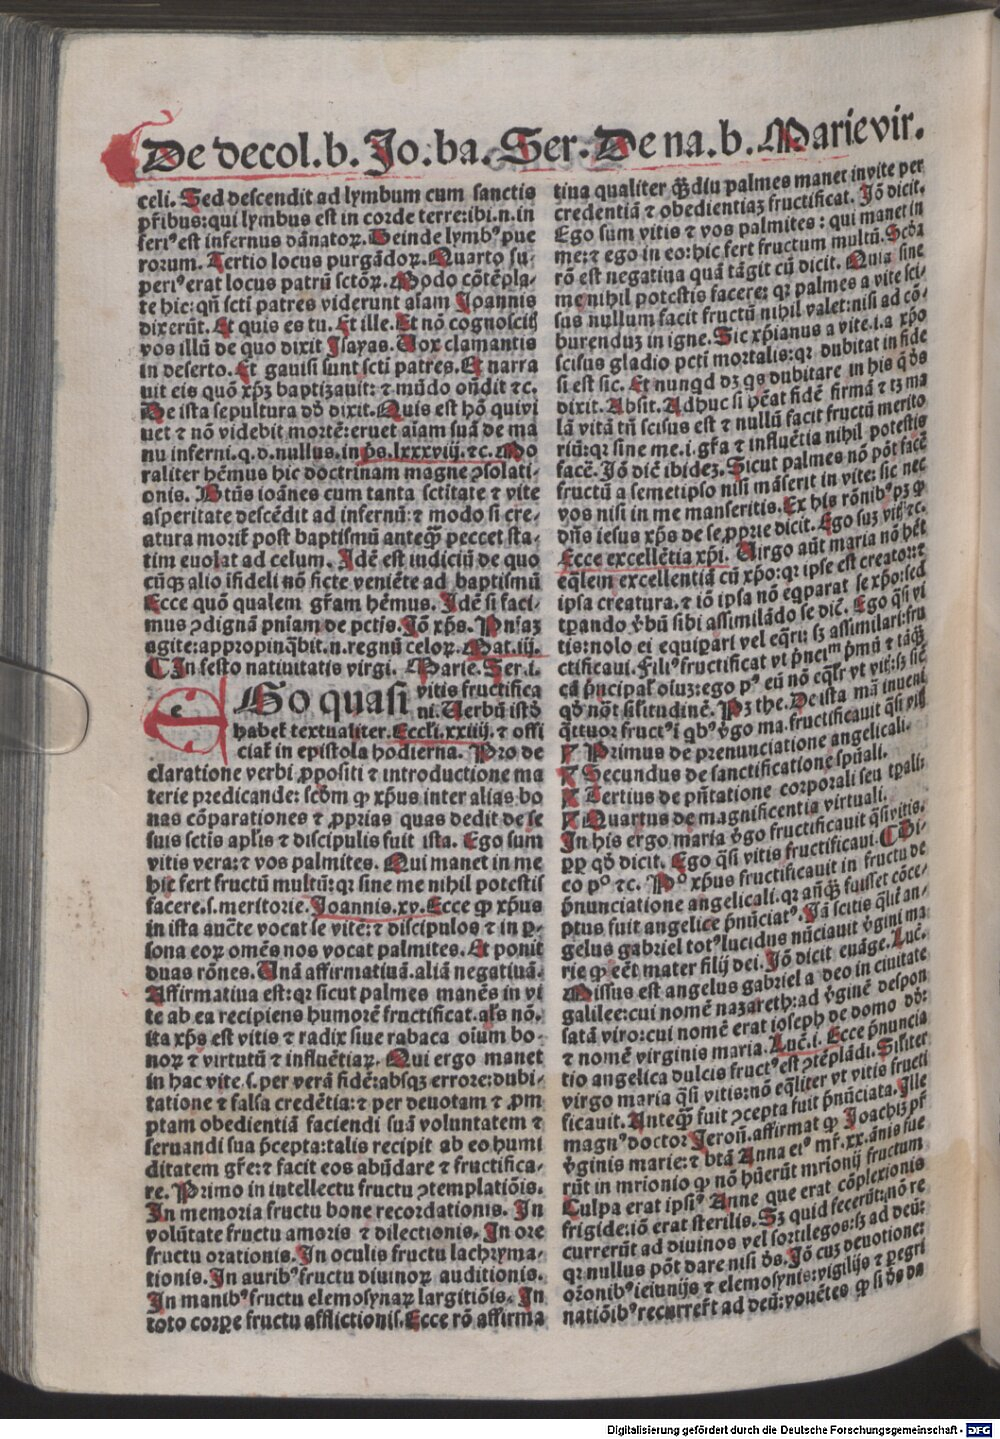 De decol.b. Jo.ba. Ser. De na.b. Marie vir.
celi. Sed descendit ad lymbum cum sanctis
pr̄ibus: qui lymbus est in corde terre: ibi.n. in
feriꝰ est infernus dānatoꝝ. Deinde lymbꝰ pue
rorum. Tertio locus purgādoꝝ. Quarto su-
periꝰ erat locus patrū sctōꝝ. Modo cōtēpla-
te hic: qn̄ scti patres viderunt aīam Joannis
dixerūt. Et quis es tu. Et ille. Et nō cognoscitꝭ
vos illū de quo dixit Isayas. Vox clamantis
in deserto. Et gauisi sunt scti patres. Et narra
uit eis quō xp̄ꝫ baptizauit: ⁊ mūdo on̄dit ⁊c.
De ista sepultura dō dixit. Quis est hō qui vi
uet ⁊ nō videbit mortē: eruet aīam suā de ma
nu inferni. q.d. nullus. in ps. lxxxviij. ⁊c. Mo
raliter hēmus hic doctrinam magne ꝯsolati-
onis. Btūs ioānes cum tanta sctitate ⁊ vite
asperitate descēdit ad infernū: ⁊ modo si cre-
atura morit̄ post baptismū anteqꝫ peccet sta-
tim euolat ad celum. Idē est iudiciū de quo
cūqꝫ alio ifideli nō ficte veniēte ad baptismū
Ecce quō qualem gr̄am hēmus. Idē si faci-
mus ꝯdignā pn̄iam de pctis. Jō xp̄s. Pn̄iaꝫ
agite: appropinq̄bit.n. regnū celoꝝ. Mat.iij.
In festo natiuitatis virgi. Marie. Ser.i.
Ego quasi vitis fructifica
ni. Verbū istō
habet̄ textualiter. Eccli.xxiiij. ⁊ offi
ciat̄ in epistola hodierna. Pro de
claratione verbi ꝓpositi ⁊ introductione ma
terie predicande: scdm ꝙ xp̄us inter alias bo
nas cōparationes ⁊ ꝓprias quas dedit de se
suis sctis apl̄is ⁊ discipulis fuit ista. Ego sum
vitis vera: ⁊ vos palmites. Qui manet in me
hic fert fructū multū: qꝛ sine me nihil potestis
facere. s. meritorie. Joannis.xv. Ecce ꝙ xp̄us
in ista aucte vocat se vitē: ⁊ discipulos ⁊ in ꝑ-
sona eoꝝ omēs nos vocat palmites. Et ponit
duas rōnes. Unā affirmatiuā. aliā negatiuā.
Affirmatiua est: qꝛ sicut palmes manēs in vi
te ab ea recipiens humorē fructificat. al̄s nō.
ita xp̄s est vitis ⁊ radix siue rabaca oīum bo-
noꝝ ⁊ virtutū ⁊ influētiaꝝ. Qui ergo manet
in hac vite. s. per verā fidē: absqꝫ errore: dubi-
tatione ⁊ falsa credētia: ⁊ per deuotam ⁊ ꝓm
ptam obedientiā faciendi suā voluntatem ⁊
seruandi sua p̄cepta: talis recipit ab eo humi
ditatem gr̄e: ⁊ facit eos abūdare ⁊ fructifica-
re. Primo in intellectu fructu ꝯtemplatiōis.
In memoria fructu bone recordationis. In
volūtate fructu amoris ⁊ dilectionis. In ore
fructu orationis. In oculis fructu lachryma-
tionis. In auribꝰ fructu diuinoꝝ auditionis.
In manibꝰ fructu elemosynaꝝ largitiōis. In
toto corpe fructu afflictionis. Ecce rō affirma
tiua qualiter qꝫdiu palmes manet in vite per
credentiā ⁊ obedientiaꝫ fructificat. Jō dicit.
Ego sum vitis ⁊ vos palmites: qui manet in
me: ⁊ ego in eo: hic fert fructum multū. Scda
rō est negatiua quā tāgit cū dicit. Quia sine
me nihil potestis facere: qꝛ palmes a vite sci-
sus nullum facit fructū nihil valet: nisi ad cō-
burenduꝫ in igne. Sic xp̄ianus a vite .i. a xp̄o
scisus gladio pcti mortalis: qꝛ dubitat in fide
si est sic. Et nunqd dꝫ qs dubitare in his q̄ ds
dixit. Absit. Adhuc si hēat fidē firmā ⁊ tꝫ ma
lā vitā tn̄ scisus est ⁊ nullū facit fructū merito
riū: qꝛ sine me .i. gr̄a ⁊ influētia nihil potestis
facē. Jō dic̄ ibideꝫ. Sicut palmes nō pōt facē
fructū a semetipso nisi māserit in vite: sic nec
vos nisi in me manseritis. Ex his rōnibꝰ pꝫ ꝙ
dn̄s iesus xp̄s de se ꝓprie dicit. Ego suꝫ vitꝭ ⁊c.
Ecce excellētia xp̄i. Virgo aūt maria nō hēt
eq̄lem excellentiā cū xp̄o: qꝛ ipse est creator: ⁊
ipsa creatura. ⁊ iō ipsa nō eq̄parat se xp̄o: sed
tꝑando v̄bū sibi assimilādo se dic̄. Ego q̄si vi
tis: nolo ei equipari vel eq̄ri: sꝫ assimilari: fru
ctificaui. Filiꝰ fructificat vt p̄nciᵐ p̄mū ⁊ tāqꝫ
cā p̄ncipal̄ oīuꝫ: ego pꝰ eū nō eq̄lr̄ vt vitꝭ: sꝫ sic̄
qd nōt sil̄itudinē. Pꝫ the. De ista mā inueni
q̄tuor fructꝰ ī qbꝰ v̄go ma. fructificauit q̄si vitꝭ
Primus de prenunciatione angelicali.
Secundus de sanctificatione spūali.
Tertius de pn̄tatione corporali seu tꝑali.
Quartus de magnificentia virtuali.
In his ergo maria v̄go fructificauit q̄si vitis.
ꝓp qd dicit. Ego q̄si vitis fructificaui. Di-
co pº ⁊c. Pº xp̄us fructificauit in fructu de
p̄nunciatione angelicali. qꝛ anqꝫ fuisset cōce-
ptus fuit angelice p̄nūciatꝰ. Jā scitis qlr̄ an-
gelus gabriel totꝰ lucidus nūciauit v̄gini ma
rie ꝙ eēt mater filij dei. Jō dicit euāge. Luc̄.
Missus est angelus gabriel a deo in ciuitatē
galilee: cui nomē nazareth: ad v̄ginē despon
satā viro: cui nomē erat ioseph de domo dd:
⁊ nomē virginis maria. Luc̄.i. Ecce p̄nuncia
tio angelica dulcis fructꝰ est ꝯtēplādi. Siliter
virgo maria q̄si vitis: nō eq̄liter vt vitis fructi
ficauit. Anteqꝫ fuit ꝯcepta fuit p̄nūciata. Ille
magnꝰ doctor Jeroñ. affirmat ꝙ Joachiꝫ pr̄
v̄ginis marie: ⁊ btā Anna eiꝰ mr̄. xx. ānis fue
rūt in mr̄ionio ꝙ nō hūerūt mr̄ionij fructum
Culpa erat ipsiꝰ Anne que erat cōplexionis
frigide: iō erat sterilis. Sꝫ quid fecerūt: nō re
currerūt ad diuinos vel sortilegos: sꝫ ad deū:
qꝛ nullus pōt dare nisi ds. Jō cuꝫ deuotione:
orōnibꝰ ieiunijs ⁊ elemosynis: vigilijs ⁊ ꝑegri
natiōibꝰ recurrer̄t ad deū: vouētes ꝙ si ds da
Digitalisierung gefördert durch die Deutsche Forschungsgemeinschaft - DFG